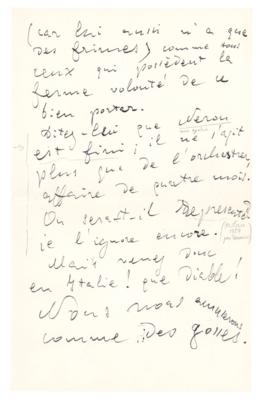 (car lui aussi n'a que
des frimes) comme tous
ceux qui possèdent la
ferme volonté de se
bien porter.
Dites-lui que Néron
est fini ; il ne s'agit
plus que de l'orchestrer,
affaire de quatre mois.
Où serait-il représenté
je l'ignore encore.
Mais venez donc
en Italie ! que Diable !
Nous nous amuserons
comme des gosses.